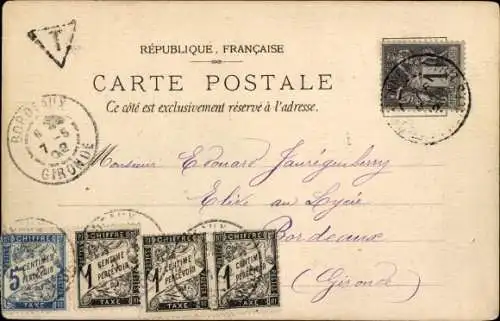 T
RÉPUBLIQUE FRANÇAISE
CARTE POSTALE
Ce côté est exclusivement réservé à l'adresse.
1
BORDEAUX
6
7 - 5
02
GIRONDE
Monsieur Edouard Jauréguiberry
Elève au Lycée
Bordeaux
(Gironde)
CHIFFRE
5
CENTIMES
À PERCEVOIR
TAXE
CHIFFRE
1
CENTIME
À
PERCEVOIR
TAXE
CHIFFRE
1
CENTIME
À
PERCEVOIR
TAXE
CHIFFRE
1
CENTIME
À
PERCEVOIR
TAXE